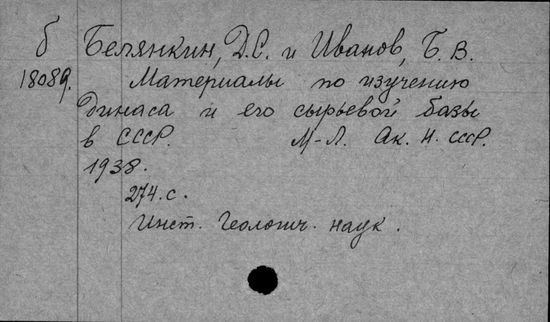 б Белянкин, Д.С. и Иванов, Б.В.
18089. Материалы по изучению
Динаса и его сырьевой базы
в СССР. М-Л. Ак. Н. СССР.
1938.
274.с.
Инст. Геологич. наук.